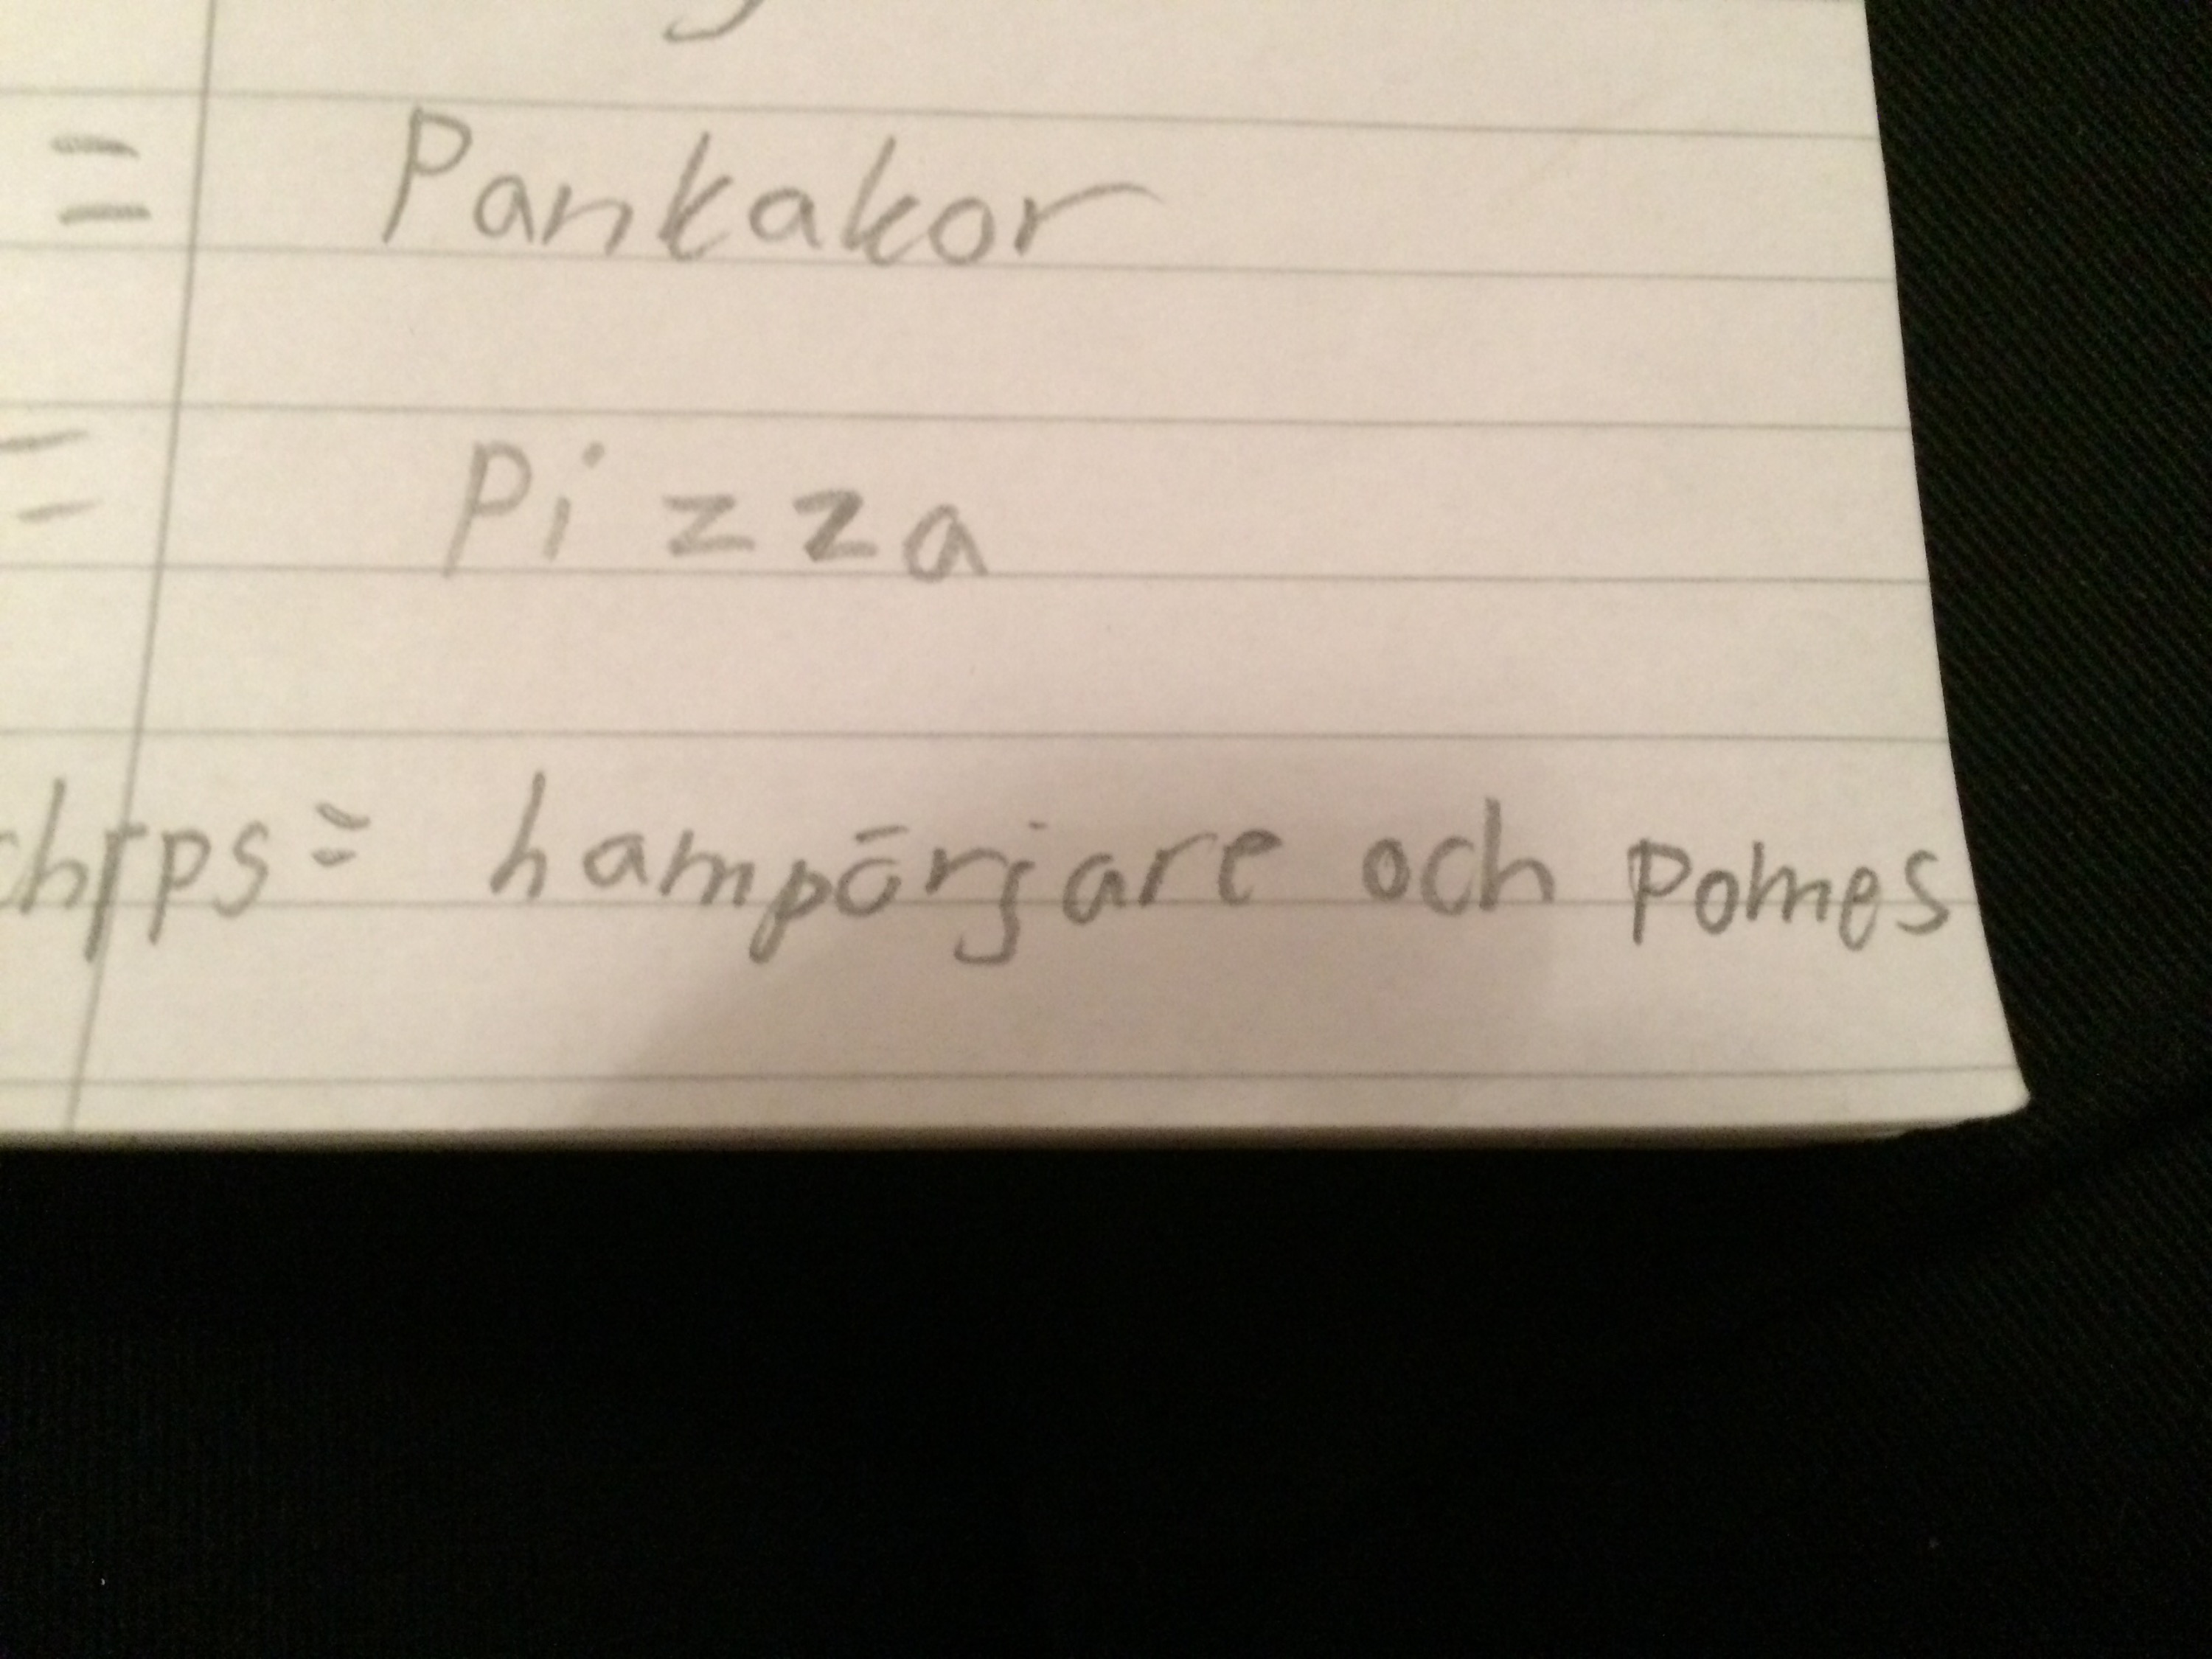 = Pankakor
= Pizza
chips= hampörjare och pomes